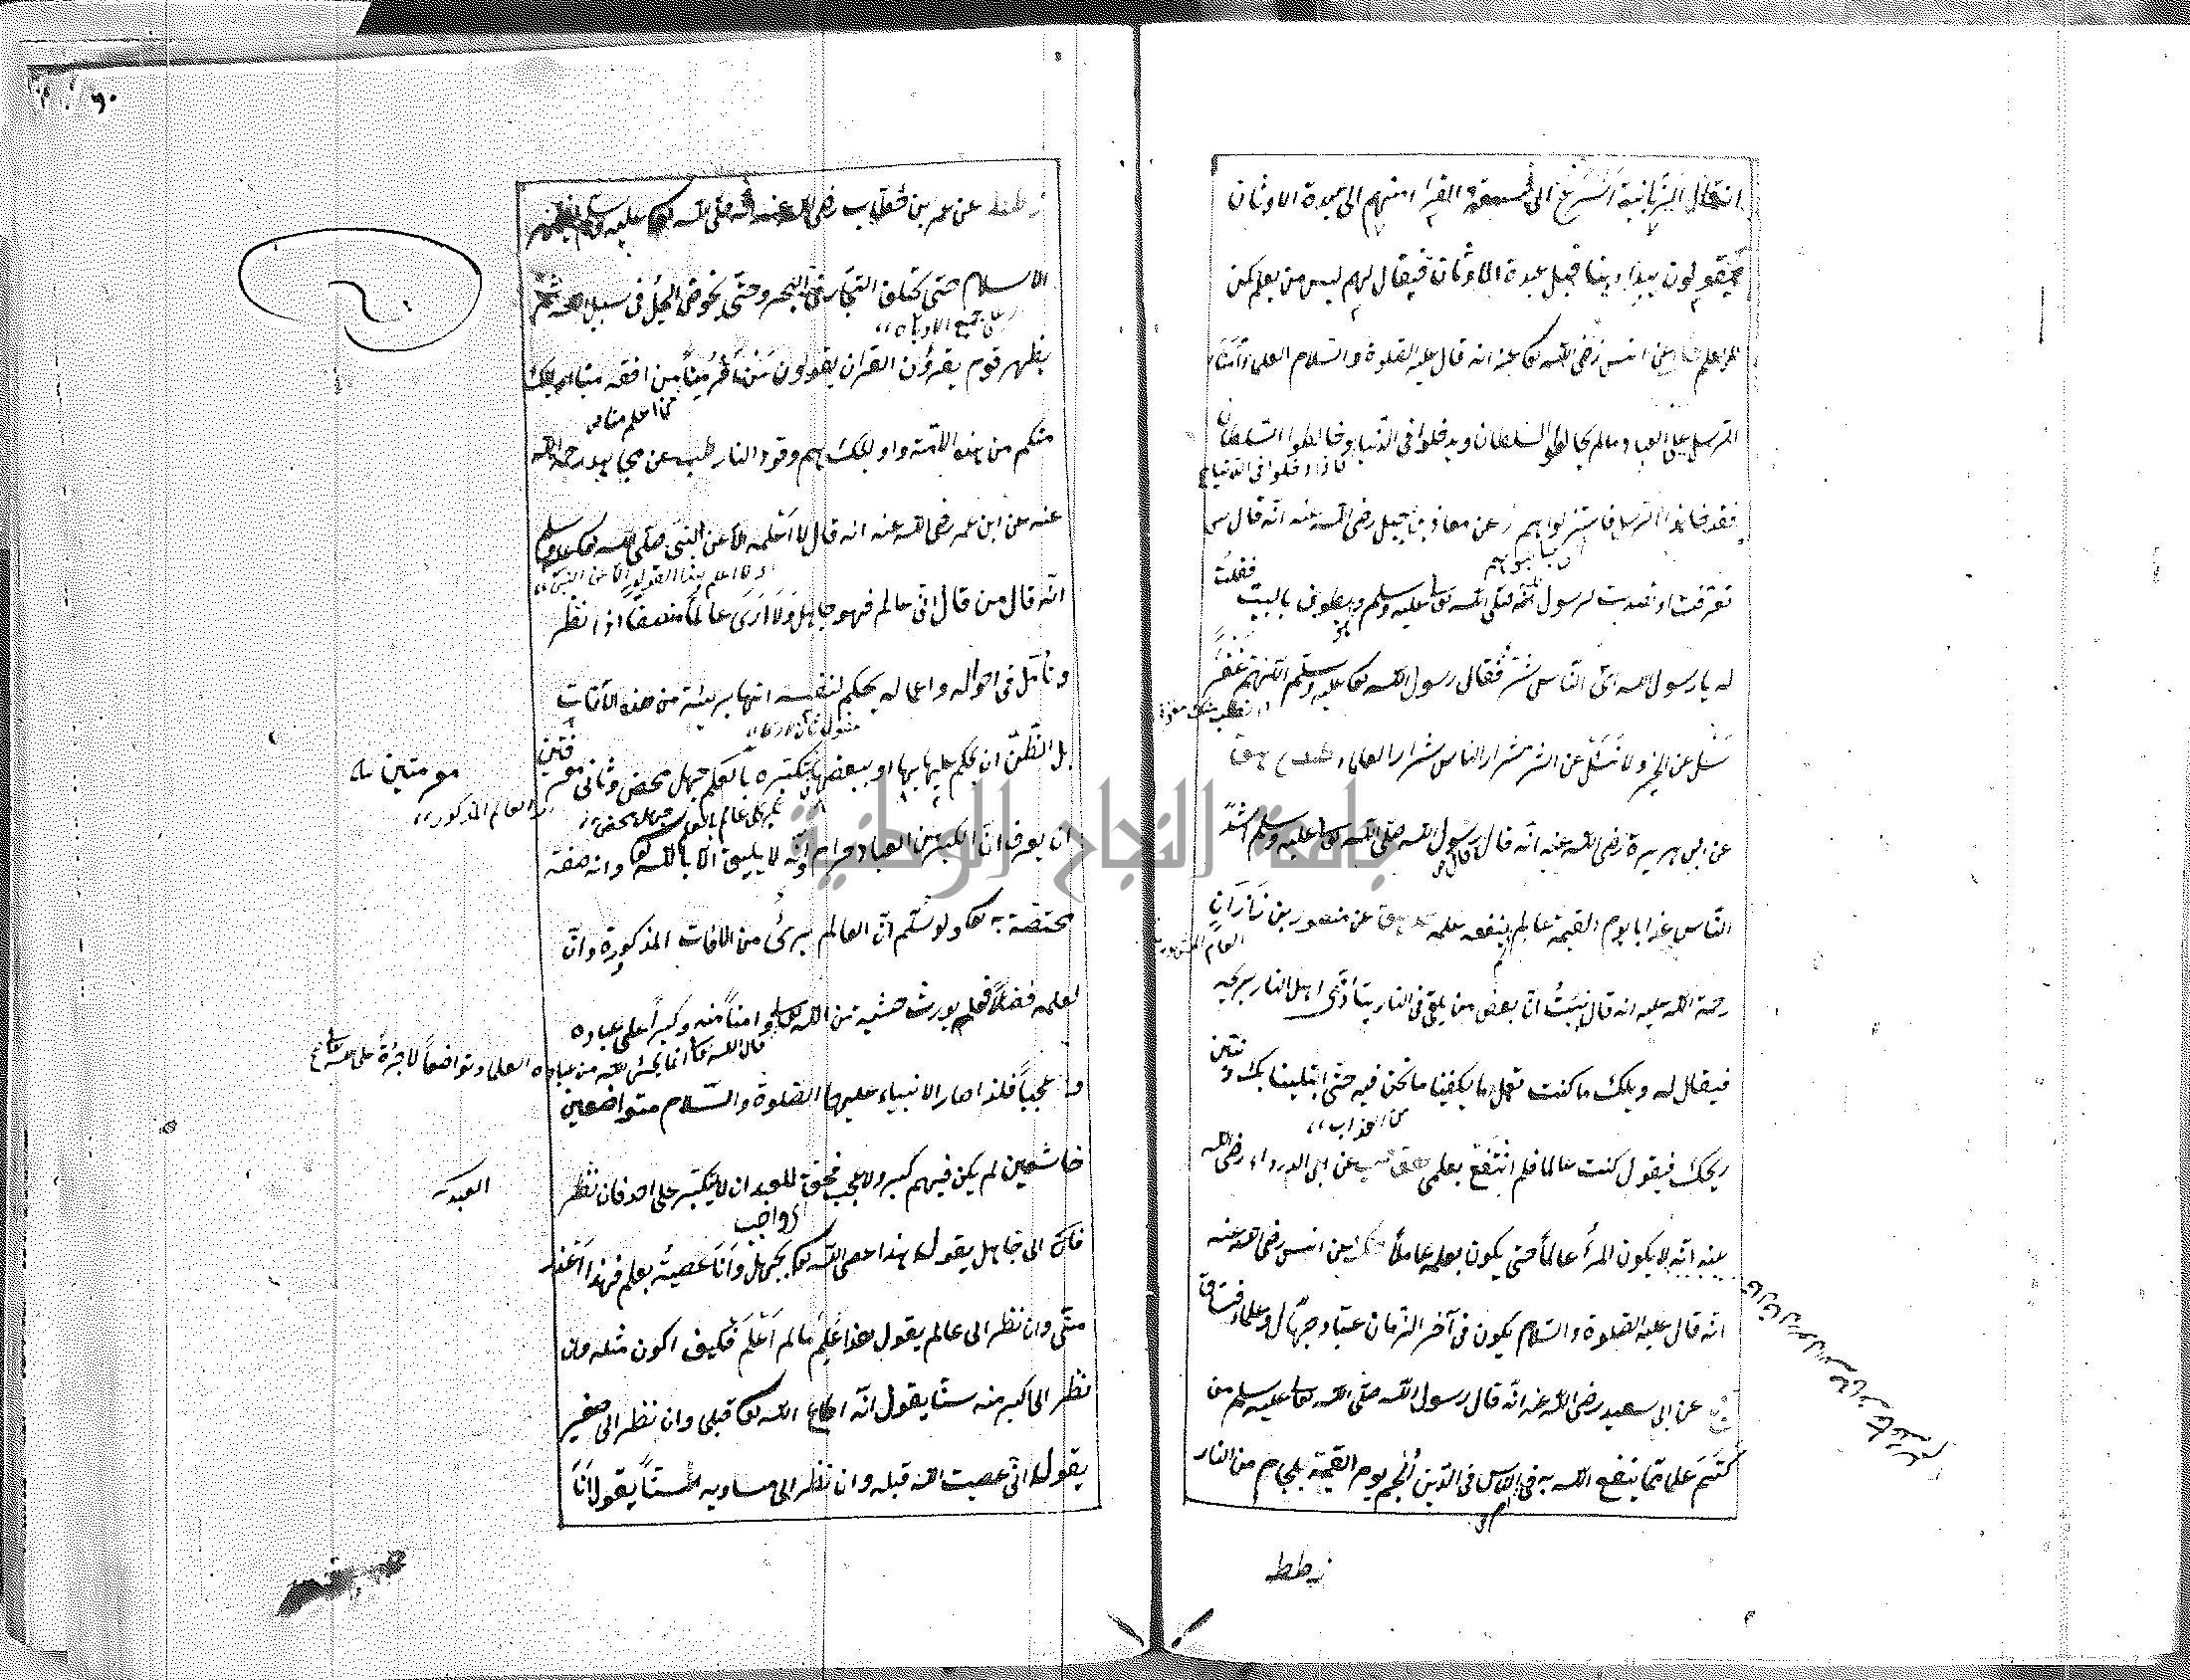 انه قال الزبانية اسرع الى فسقة القراء منهم الى عبدة الاوثان
فيقولون يبدأ بنا قبل عبدة الاوثان فيقال لهم ليس من يعلم كمن
لا يعلم عن انس رضى الله تعا عنه انه قال عليه الصلوة والسلام العلماء امناء
الرسل على العباد ما لم يخالطوا السلطان ويدخلوا في الدنيا وخالطوا السلطان
فاذا دخلوا في الدنيا
فقد خانوا الرسل فاعتزلوا هم ز عن معاذ بن جبل رضى الله عنه انه قال
تعرضت او تصديت لرسول الله صلى الله تعا عليه وسلم وهو يطوف بالبيت فقلت
له يا رسول الله اى الناس شر فقال رسول الله تعا عليه وسلم اللهم غفرا
سل عن الخير ولا تسئل عن الشر شرار الناس شرار العلماء
عن ابى هريرة رضى الله عنه انه قال قال رسول الله صلى الله تعا عليه وسلم اشد
الناس عذابا يوم القيمة عالم لم ينفعه علمه عن منصور بن زاذان
رحمة الله عليه انه قال نبئت ان بعض من يلقى في النار يتأذى اهل النار بريحه
فيقال له ويلك ما كنت تعمل ما يكفينا ما نحن فيه حتى ابتلينا بك ونتن
من العذاب
ريحك فيقول كنت عالما فلم انتفع بعلمى عن ابى الدرداء رضى الله
عنه انه لا يكون المرء عالما حتى يكون بعلمه عاملا عن انس رضى الله عنه
انه قال عليه الصلوة والسلام يكون في آخر الزمان عباد جهال وعلماء فساق
عن ابى سعيد رضى الله عنه انه قال رسول الله صلى الله تعا عليه وسلم من
كتم علما مما ينفع الله به في امر الناس في الدين الجم يوم القيمة بلجام من النار
ز طط
ز طط عن عمر بن خطاب رضى الله عنه انه صلى الله تعا عليه وسلم يظهر
الاسلام حتى تختلف التجار في البحر وحتى تخوض الخيل في سبيل الله ثم
على جميع الاديان
يظهر قوم يقرؤن القرآن يقولون من اقرأ منا من افقه منا اولئك
من اعلم منا
منكم من هذه الامة واولئك هم وقود النار طب عن مجاهد رحمة الله
عنه عن ابن عمر رضى الله عنه انه قال لا اعلمه الا عن النبى صلى الله تعا عليه وسلم
اى لا اعلم هذا القول الا عن النبى
انه قال من قال انى عالم فهو جاهل ولا ارى عالما منصفا اذا نظر
وتأمل في احواله واعماله يحكم لنفسه انها بريئة من هذه الآفات
مفعول ثان ارى
بل الظن ان يحكم عليها بها او ببعضها فتكبره بالعلم جهل محض وثانى معرفتين
معرفتين
العالم المذكور
ان يعرف ان الكبر من العباد حرام وانه لا يليق الا بالله تعا وانه صفة
مختصة به تعا ولو سلم ان العالم برئ من الآفات المذكورة وان
لعلمه فضلا فعلم يورث خشية من الله تعا لا امنا منه وكبرا على عباده
قال الله تعا انما يخشى الله من عباده العلماء وتواضعا لا جرءة على الله تعا
ولا عجبا فلذا صار الانبياء عليهم الصلوة والسلام متواضعين
خاشعين لم يكن فيهم كبر ولا عجب فحق للعبد ان لا يتكبر على احد فان نظر
العبد
اى واجب
الى جاهل يقول هذا عصى الله تعا بجهل وانا عصيته بعلم فهذا اعذر
منى وان نظر الى عالم يقول هذا علم ما لم اعلم فكيف اكون مثله وان
نظر الى اكبر منه سنا يقول انه اطاع الله تعا قبلى وان نظر الى صغير
يقول انى عصيت الله قبله وان نظر الى مساويه سنا يقول انا
جامعة النجاح الوطنية